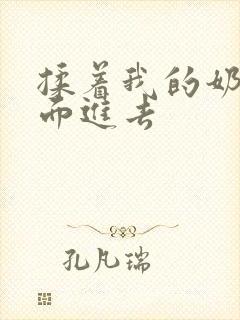 揉着我的奶
而進去
孔凡瑞